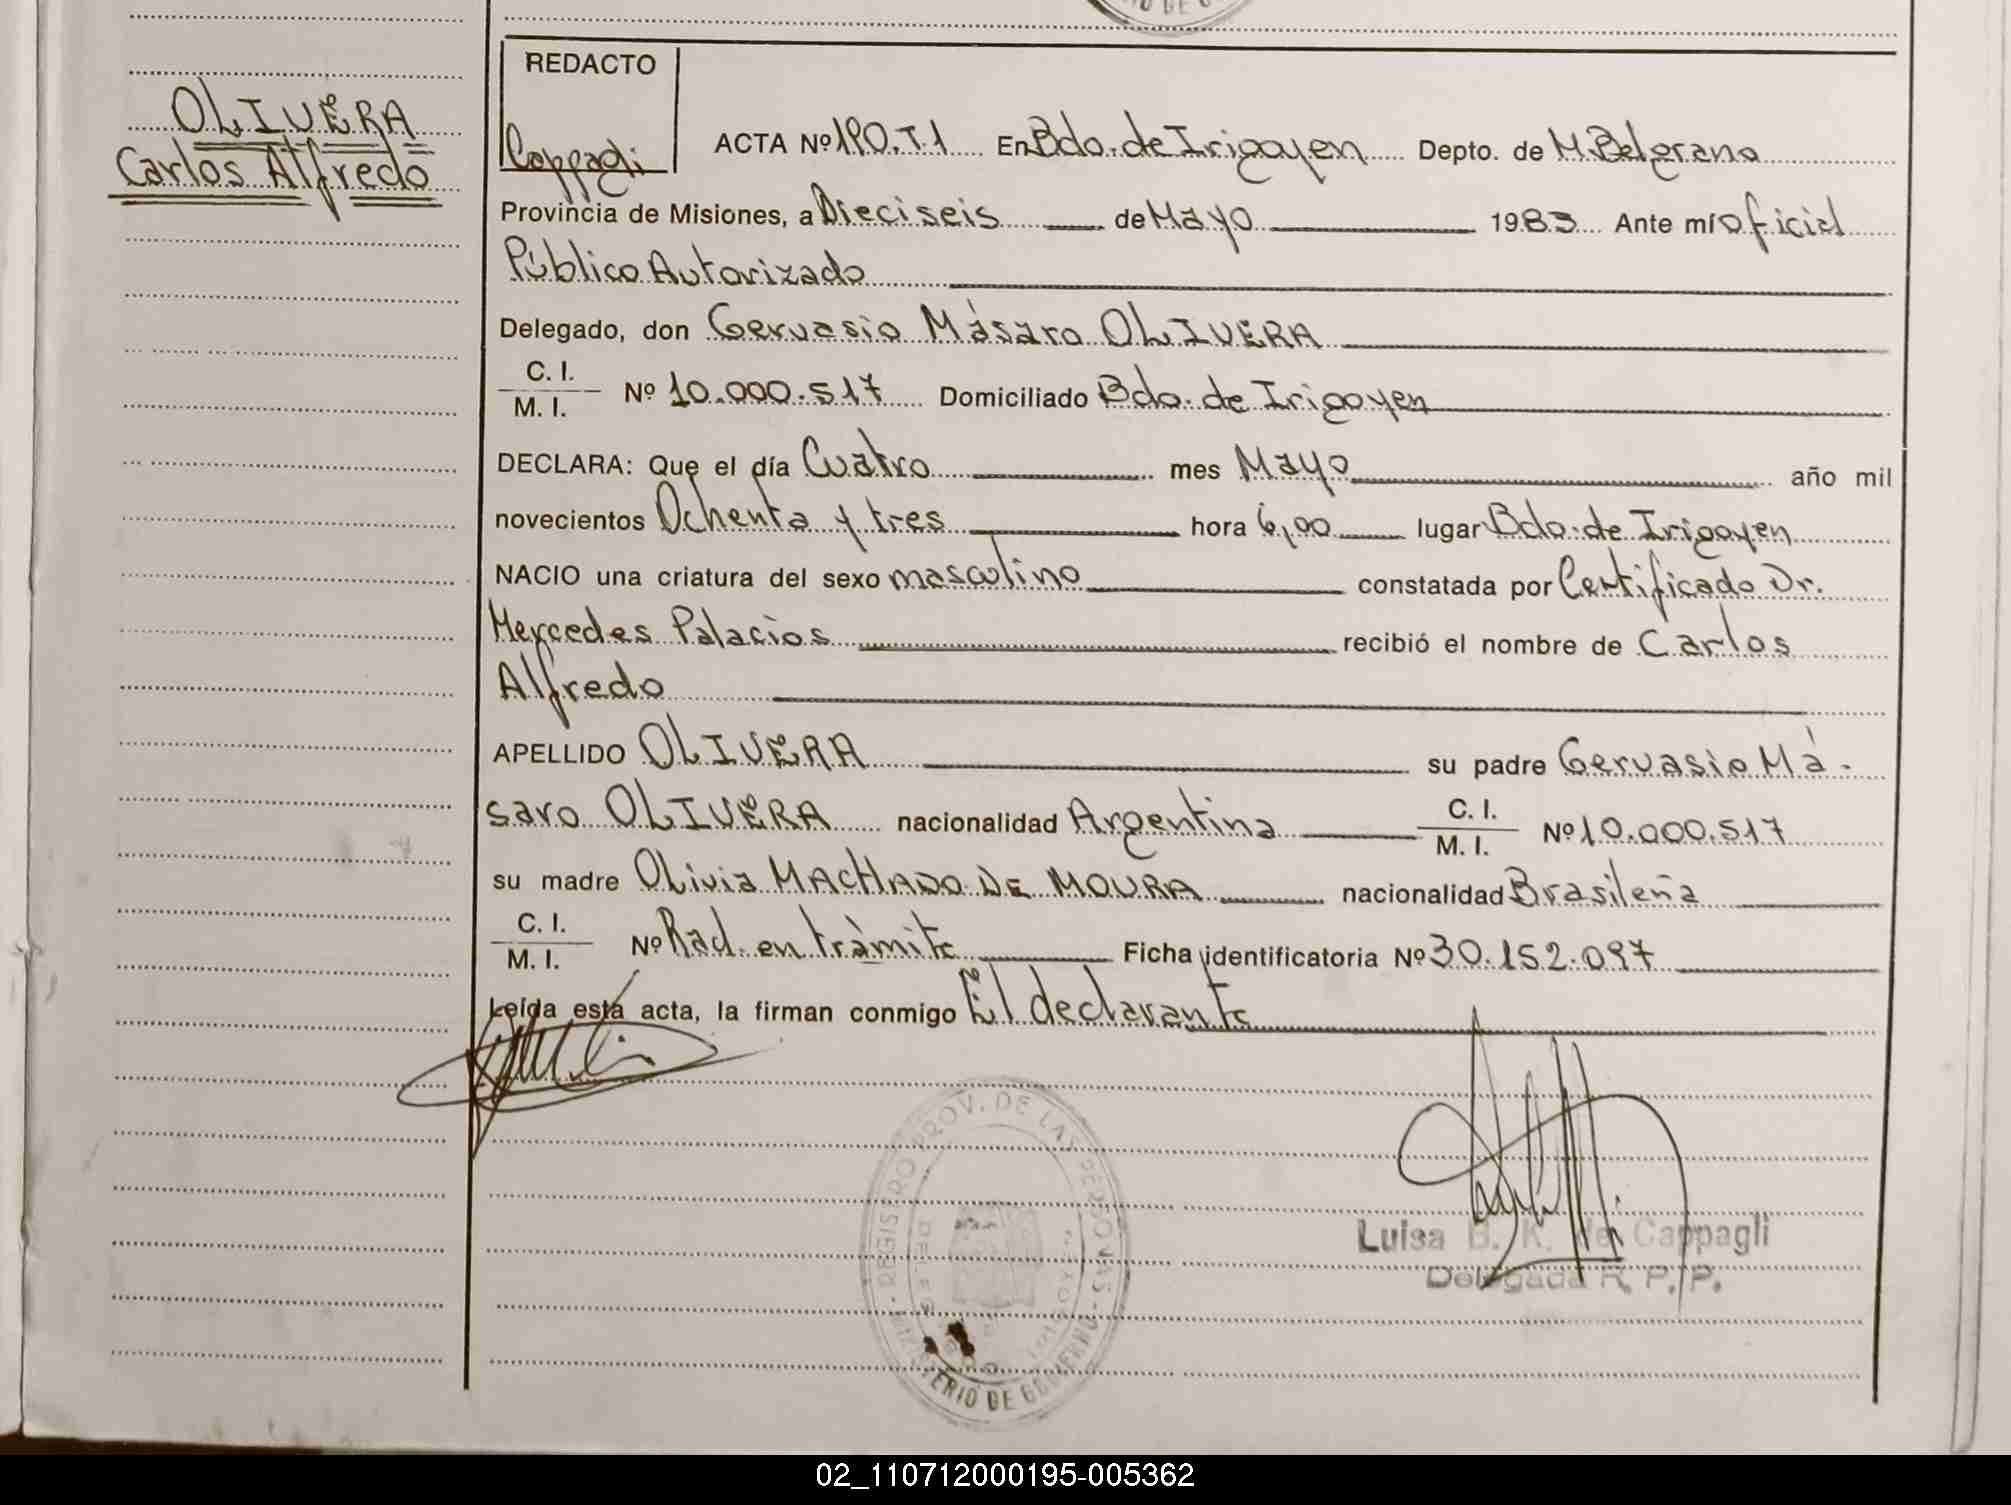 OLIVERA
Carlos Alfredo
REDACTO
Cappagli
ACTA Nº 190.T1 En Bdo. de Irigoyen Depto. de M. Belgrano
Provincia de Misiones, a Dieciseis de Mayo 1983 Ante mí oficial
Público Autorizado
Delegado, don Gervasio Másaro OLIVERA
C. I.
M. I. Nº 10.000.517 Domiciliado Bdo. de Irigoyen
DECLARA: Que el día Cuatro mes Mayo año mil
novecientos Ochenta y tres hora 6,00 lugar Bdo. de Irigoyen
NACIO una criatura del sexo masculino constatada por Certificado Dr.
Mercedes Palacios recibió el nombre de Carlos
Alfredo
APELLIDO OLIVERA su padre Gervasio Má-
saro OLIVERA nacionalidad Argentina C. I. M. I. Nº 10.000.517
su madre Olivia MACHADO DE MOURA nacionalidad Brasileña
C. I.
M. I. Nº Rad. en tràmite Ficha identificatoria Nº 30.152.097
Leída esta acta, la firman conmigo El declarante
REGISTRO PROV. DE LAS PERSONAS
MINISTERIO DE GOBIERNO
Luisa B. K. de Cappagli
Delegada R. P. P.
02_110712000195-005362